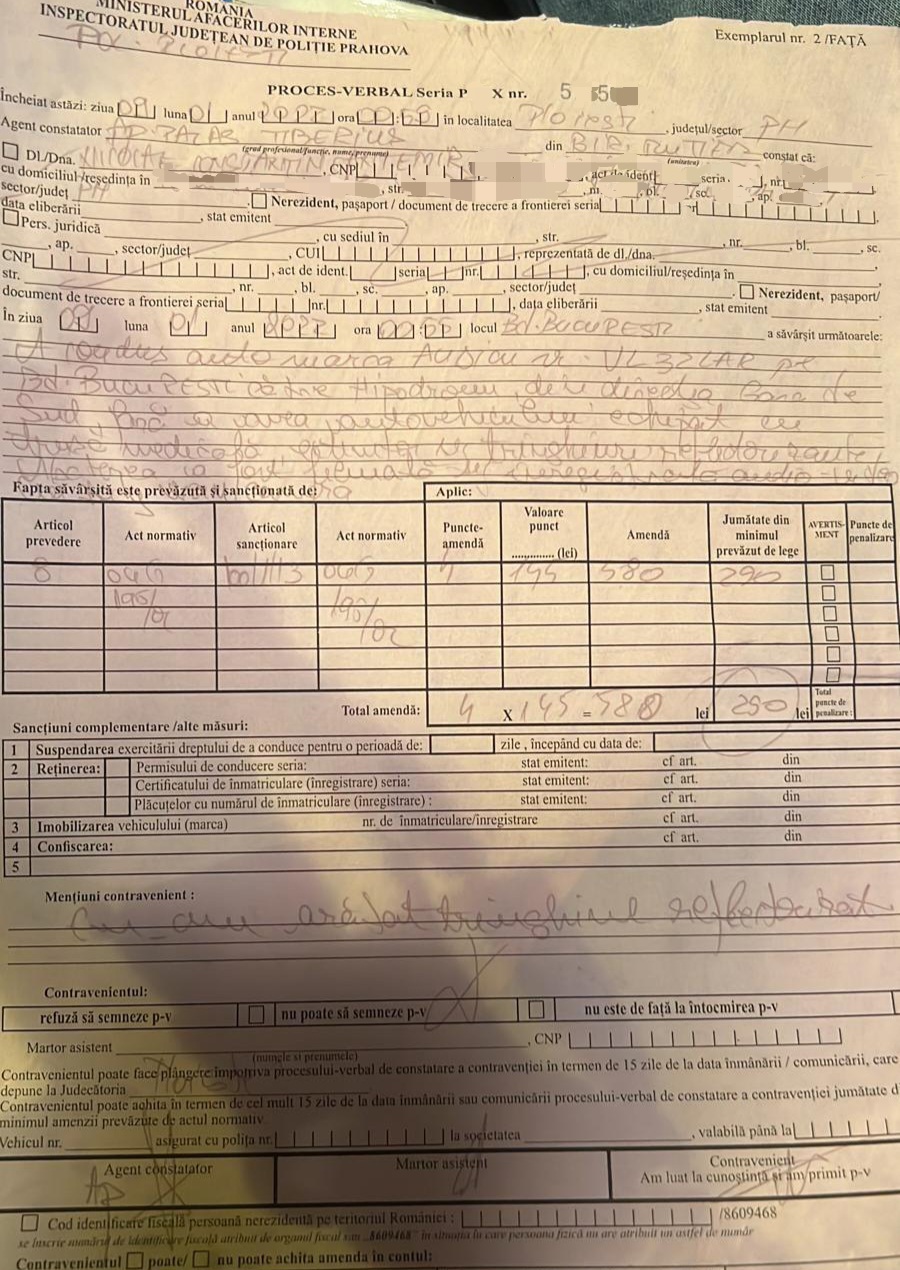 ROMÂNIA
MINISTERUL AFACERILOR INTERNE
INSPECTORATUL JUDEȚEAN DE POLIȚIE PRAHOVA
Exemplarul nr. 2 /FAȚĂ
PROCES-VERBAL Seria P X nr. 5 5
Încheiat astăzi: ziua luna 01 anul ora în localitatea Ploiești, județul/sector PH
Agent constatator TIBERIUS din constat că:
(grad profesional/funcție, nume, prenume) (unitatea)
Dl/Dna. , CNP , act de ident. seria , nr.
cu domiciliul/reședința în , str. , nr. , bl. , sc. , ap.
sector/județ PH Nerezident, pașaport / document de trecere a frontierei seria nr.
data eliberării , stat emitent
Pers. juridică , cu sediul în , str. , nr. , bl. , sc.
, ap. , sector/județ , CUI , reprezentată de dl./dna.
CNP , act de ident. seria nr. , cu domiciliul/reședința în
str. , nr. , bl. , sc. , ap. , sector/județ Nerezident, pașaport/
document de trecere a frontierei seria nr. , data eliberării , stat emitent
În ziua luna 01 anul ora locul Bd. BUCUREȘTI a săvârșit următoarele:
A condus auto marca Audi cu nr. pe
Bd. BUCUREȘTI către Hipodrom, din direcția Gara de
Sud, fără a avea autovehiculul echipat cu
trusă medicală, și triunghiuri reflectorizante,
Fapta săvârșită este prevăzută și sancționată de: Aplic:
Articol prevedere Act normativ Articol sancționare Act normativ Puncte-amendă Valoare punct ............. (lei) Amendă Jumătate din minimul prevăzut de lege AVERTISMENT Puncte de penalizare
8 OUG OUG 4 145 580 290
195/02 195/02
Total amendă: 4 X 145 = 580 lei 290 lei Total puncte de penalizare:
Sancțiuni complementare /alte măsuri:
1 Suspendarea exercitării dreptului de a conduce pentru o perioadă de: zile , începând cu data de:
2 Reținerea: Permisului de conducere seria: stat emitent: cf art. din
Certificatului de înmatriculare (înregistrare) seria: stat emitent: cf art. din
Plăcuțelor cu numărul de înmatriculare (înregistrare) : stat emitent: cf art. din
3 Imobilizarea vehiculului (marca) nr. de înmatriculare/înregistrare cf art. din
4 Confiscarea: cf art. din
5
Mențiuni contravenient :
am arătat triunghiul reflectorizat
Contravenientul:
refuză să semneze p-v nu poate să semneze p-v nu este de față la întocmirea p-v
Martor asistent , CNP
(numele si prenumele)
Contravenientul poate face plângere împotriva procesului-verbal de constatare a contravenției în termen de 15 zile de la data înmânării / comunicării, care
depune la Judecătoria
Contravenientul poate achita în termen de cel mult 15 zile de la data înmânării sau comunicării procesului-verbal de constatare a contravenției jumătate d
minimul amenzii prevăzute de actul normativ.
Vehicul nr. asigurat cu polița nr. la societatea , valabilă până la
Agent constatator Martor asistent Contravenient
Am luat la cunoștință și am primit p-v
AP
Cod identificare fiscală persoană nerezidentă pe teritoriul României : /8609468
se înscrie numărul de identificare fiscală atribuit de organul fiscal sau „8609468" în situația în care persoana fizică nu are atribuit un astfel de număr
Contravenientul poate/ nu poate achita amenda în contul: